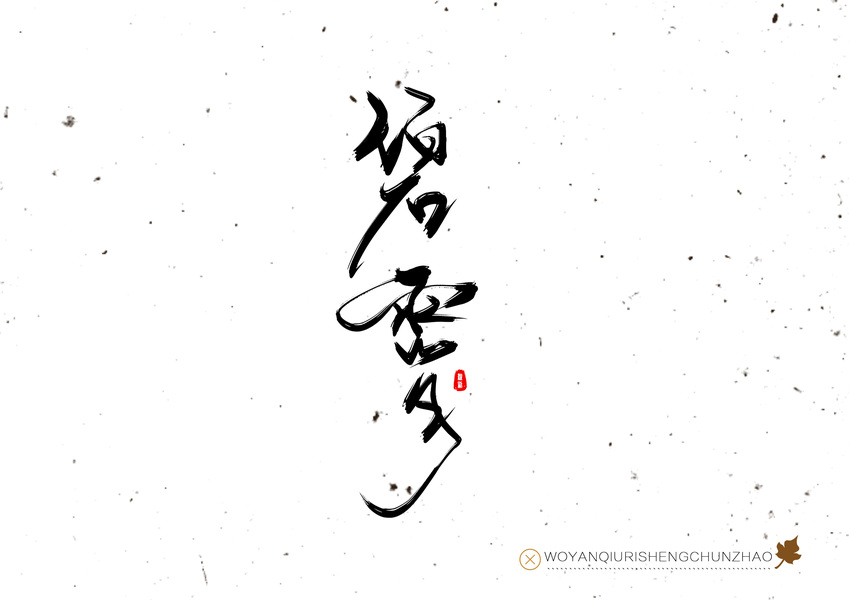 碧霄
WOYANQIURISHENGCHUNZHAO